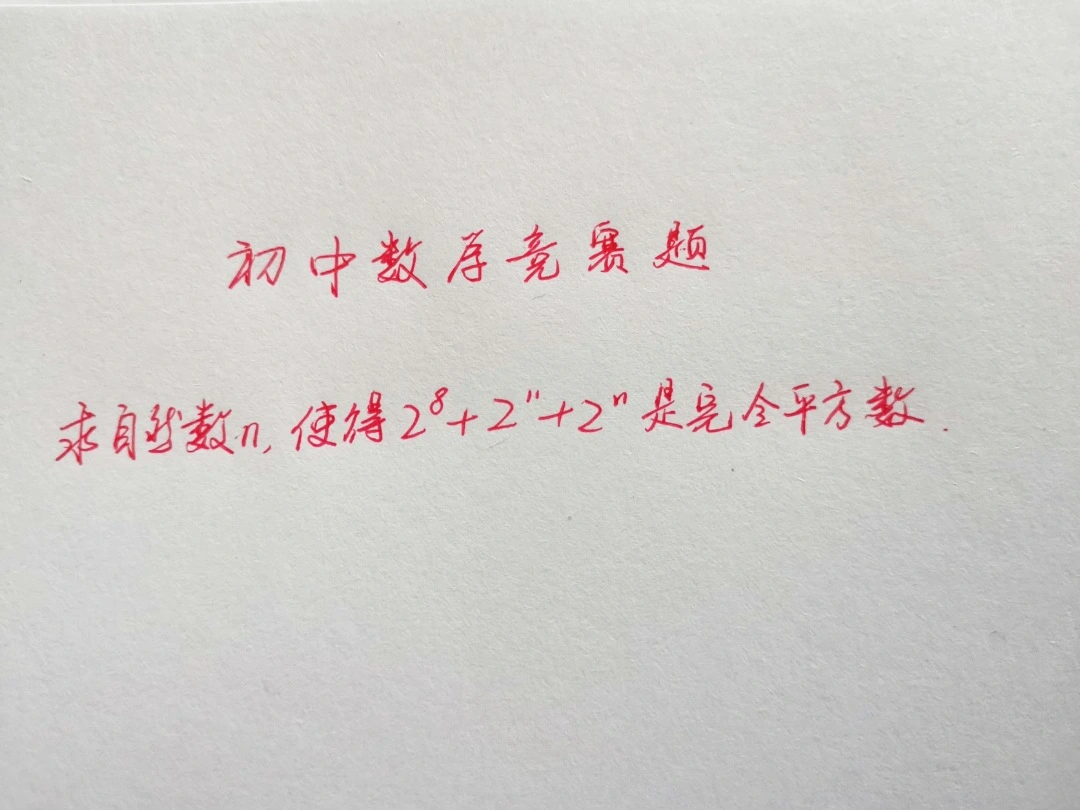 初中数学竞赛题
求自然数n,使得2⁸+2¹¹+2ⁿ是完全平方数.